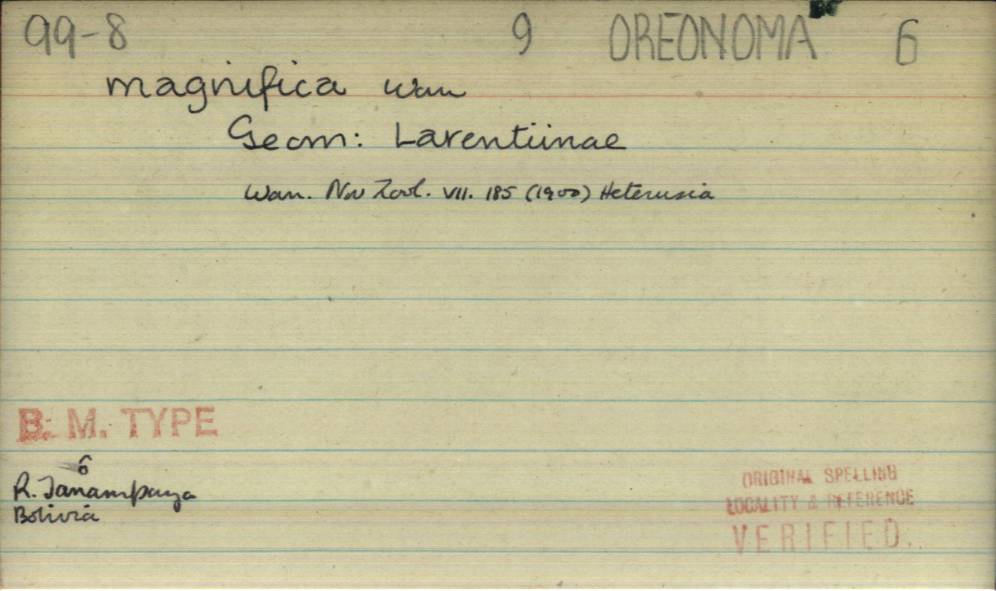 99-8 9 OREONOMA 6
magnifica Warr
Geom: Larentiinae
Warr. Nov Zool. VII. 185 (1900) Heterusia
B. M. TYPE
R. Tanampaya
Bolivia
ORIGINAL SPELLING
LOCALITY & REFERENCE
VERIFIED.